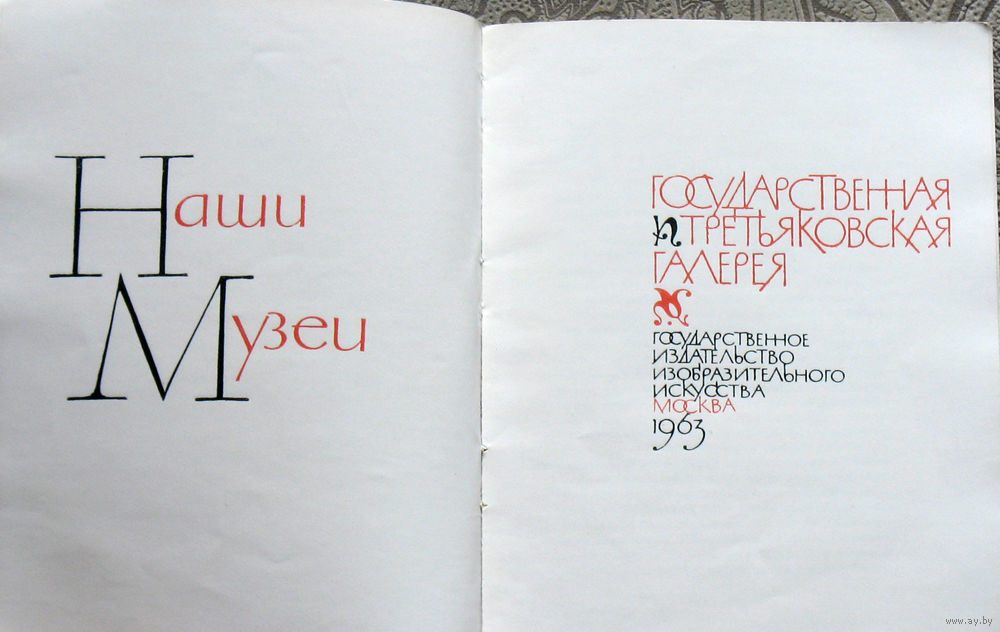 Наши
Музеи
ГОСУДАРСТВЕННАЯ
ТРЕТЬЯКОВСКАЯ
ГАЛЕРЕЯ
ГОСУДАРСТВЕННОЕ
ИЗДАТЕЛЬСТВО
ИЗОБРАЗИТЕЛЬНОГО
ИСКУССТВА
МОСКВА
1963
www.ay.by